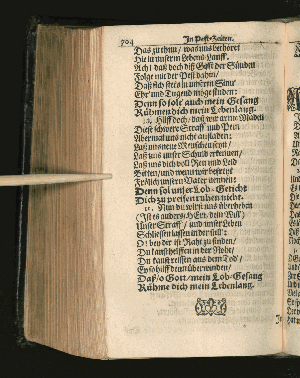 704 In Pest-Zeiten.
Das zu thun / was uns bethöret
Hie in unserm Lebens-Lauff.
Ach! daß doch diß Gifft der Sünden
Folge mit der Pest dahin /
Daß sich stets in unserm Sinn
Ehr und Tugend möge finden:
Denn so sole auch mein Gesang
Rühmen dich mein Lebenlang.
Hilff doch / daß wir arme Maden
Diese schwere Straff und Pein
Abermal uns nicht aufladen:
Laß uns neue Menschen seyn /
Laß uns unser Schuld erkennen /
Laß uns dich voll Reu und Leid
Bitten / und wenn wir befreyt
Frölich unsern Vater nennen:
Denn sol unser Lob-Geticht
Dich zu preisen ruhen nicht.
11. Nun du wirst uns überheben
(Ist es anders / HErr / dein Will)
Unser Straff / und unser Leben
Schliessen lassen in der Still:
O! der ist Raht zu finden /
Du kanst helffen in der Noht /
Du kanst reissen aus dem Tod /
Es so hilff denn überwinden /
Daß / o Gott / mein Lob-Gesang
Rühme dich mein Lebenlang.